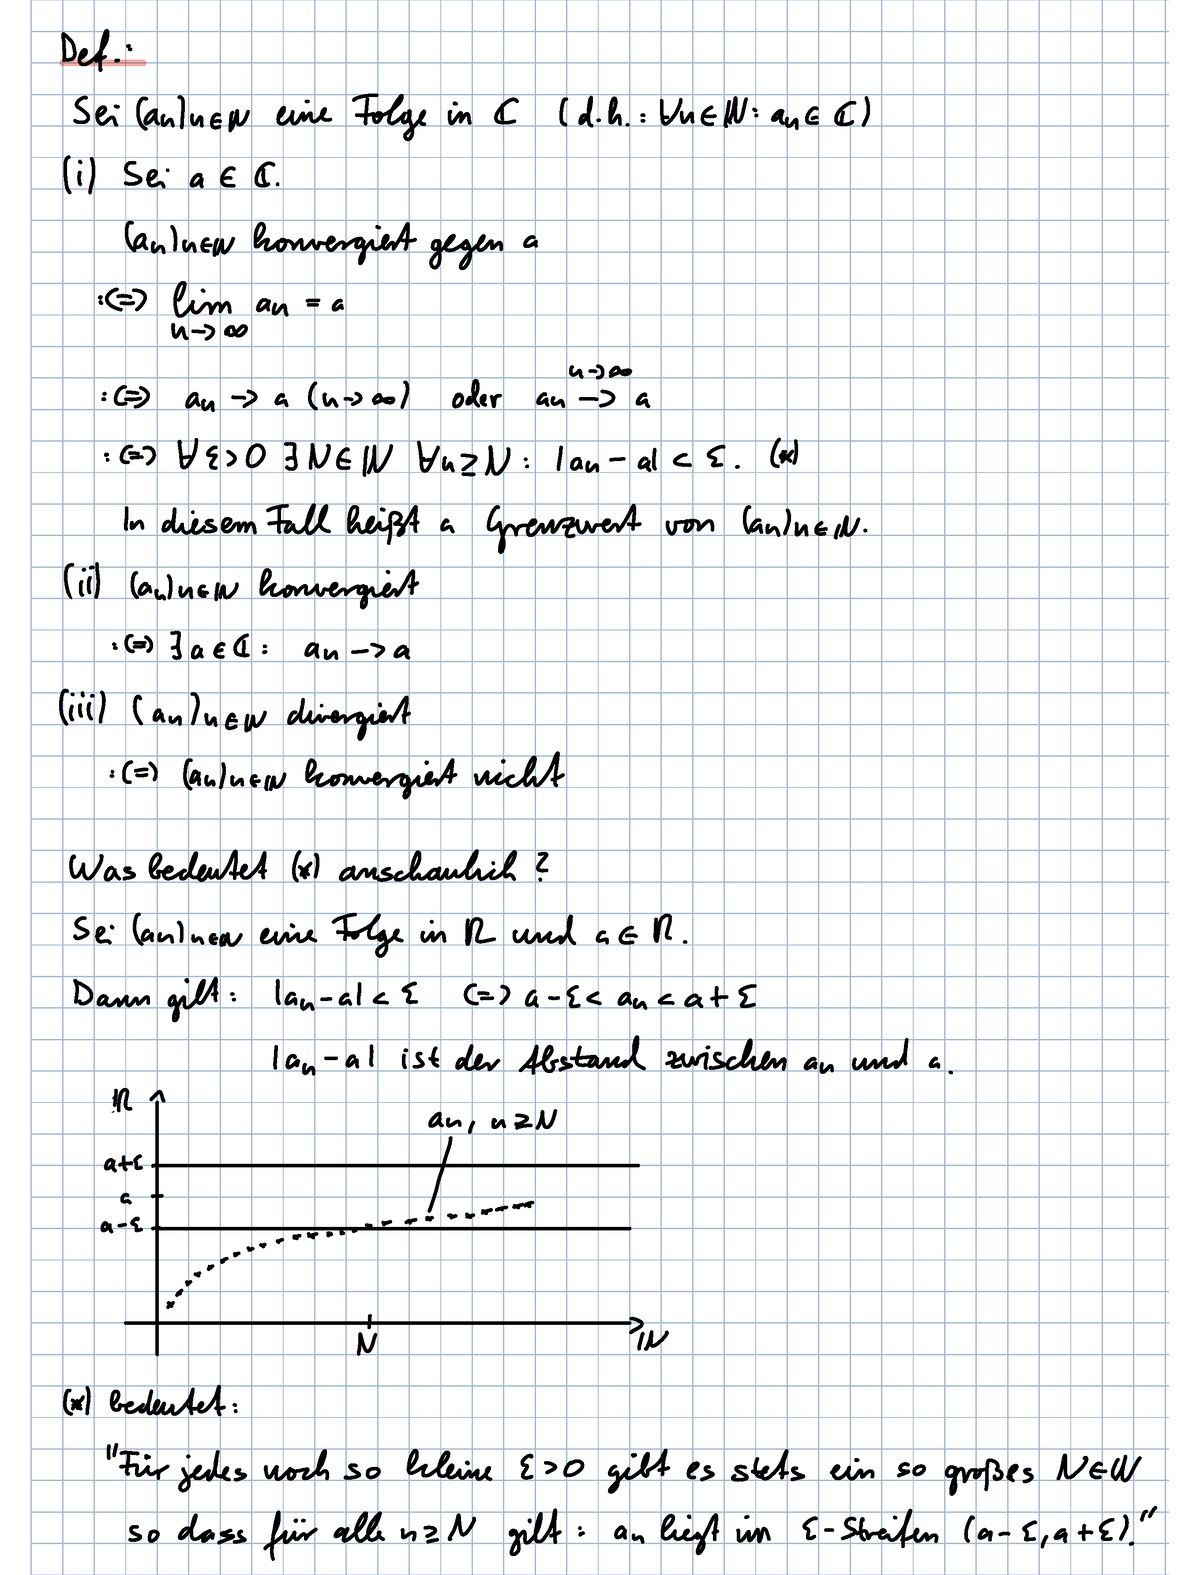 Def.:
Sei (an)n∈ℕ eine Folge in ℂ (d.h.: ∀n∈ℕ: an∈ℂ)
(i) Sei a ∈ ℂ.
(an)n∈ℕ konvergiert gegen a
:<=> lim an = a
n->∞
n->∞
:<=> an -> a (n->∞) oder an -> a
:<=> ∀ε>0 ∃N∈ℕ ∀n≥N: |an - a| < ε. (*)
In diesem Fall heißt a Grenzwert von (an)n∈ℕ.
(ii) (an)n∈ℕ konvergiert
:<=> ∃a∈ℂ: an -> a
(iii) (an)n∈ℕ divergiert
:<=> (an)n∈ℕ konvergiert nicht
Was bedeutet (*) anschaulich?
Sei (an)n∈ℕ eine Folge in ℝ und a ∈ ℝ.
Dann gilt: |an-a| < ε <=> a-ε < an < a+ε
|an-a| ist der Abstand zwischen an und a.
ℝ
an, n≥N
a+ε
a
a-ε
N
ℕ
(*) bedeutet:
"Für jedes noch so kleine ε>0 gibt es stets ein so großes N∈ℕ
so dass für alle n≥N gilt: an liegt im ε-Streifen (a-ε, a+ε)."